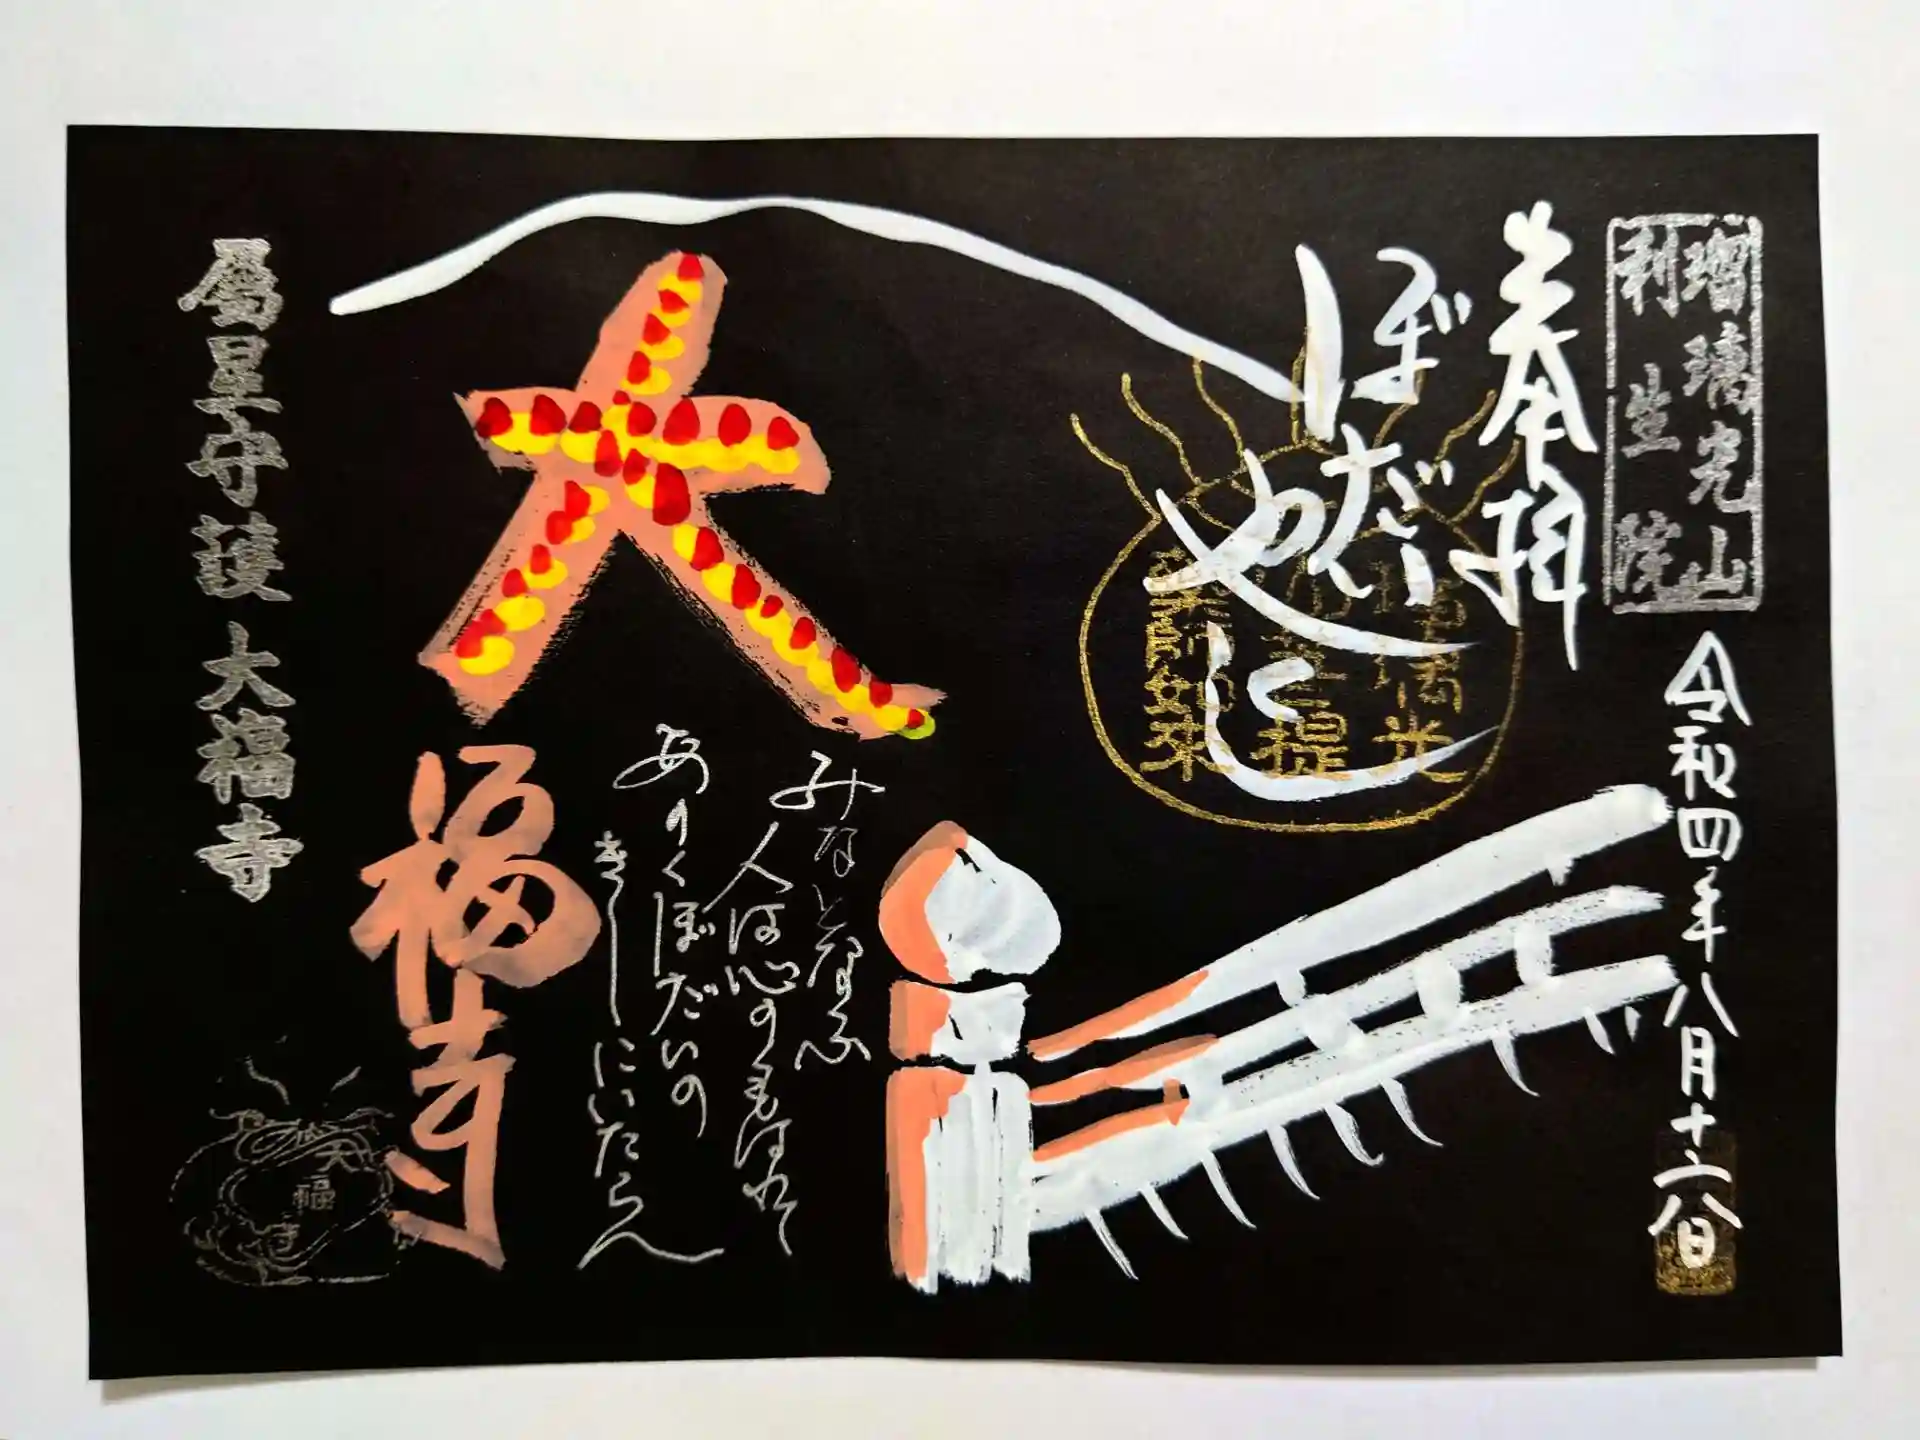 瑠璃光山
利生院
奉拝
令和四年八月十六日
ぼだい
やくし
瑠璃光
菩提
薬師如来
大
福寺
みな
人は心の
あかくぼだいの
きしにいたらん
属星守護 大福寺
福